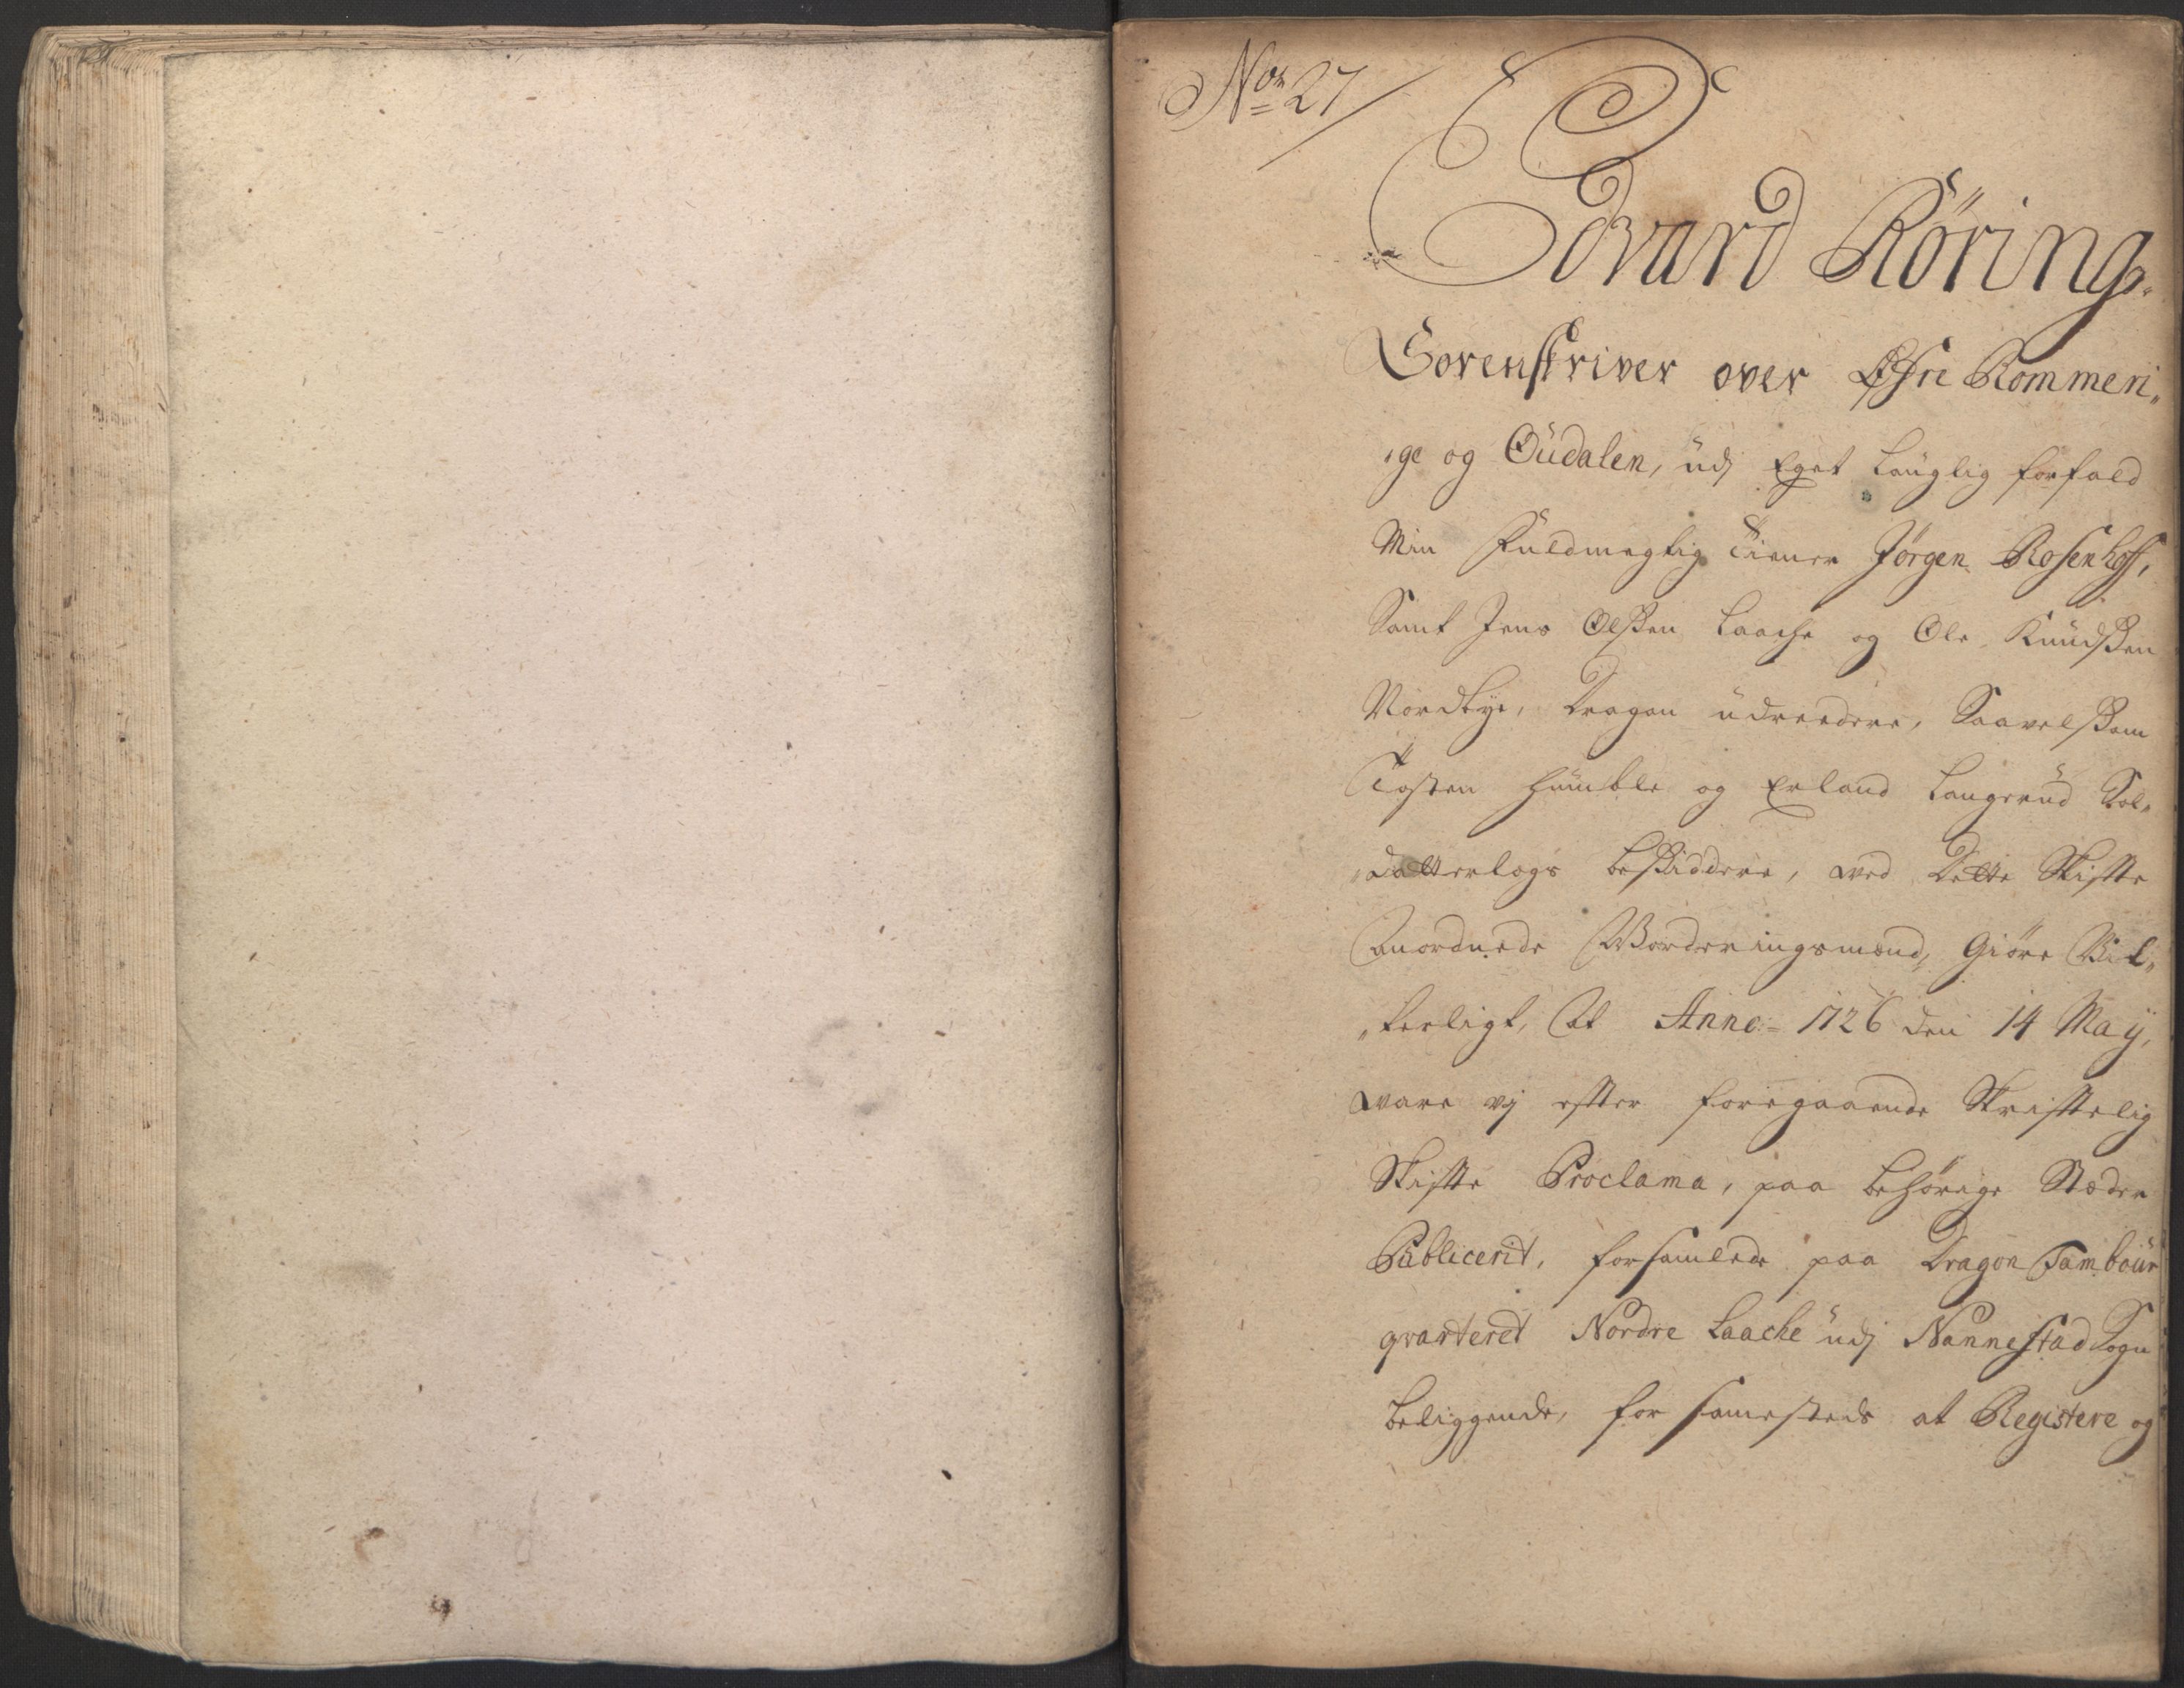 No 27
Edvard Röring.
Sorenskriver over Øfre Rommeri„
ige og Oudalen, udj Eget lauglig forfald
Min Fuldmegtig Tiener Jörgen Rosenhoff,
Samt Jens Olßen Laache og Ole Knudßen
Nordbye, Dragon udreedere, Saavelßom
Tosten Humble og Erland Langerud Sol„
„datterlegs beßiddere, ved Dette Skifte
Anordnede Vorderingsmænd, Giöre Vit„
„terligt, At Anno 1726 den 14 Maij,
vare vj efter foregaaende Skriftelig
Skifte Proclama, paa behörige Stæder
Publicerit, forsamlede paa Dragon Tambour
qvarteret Nordre Laache udj Nannestad Sogn
beliggende, for sammesteds at Registere og